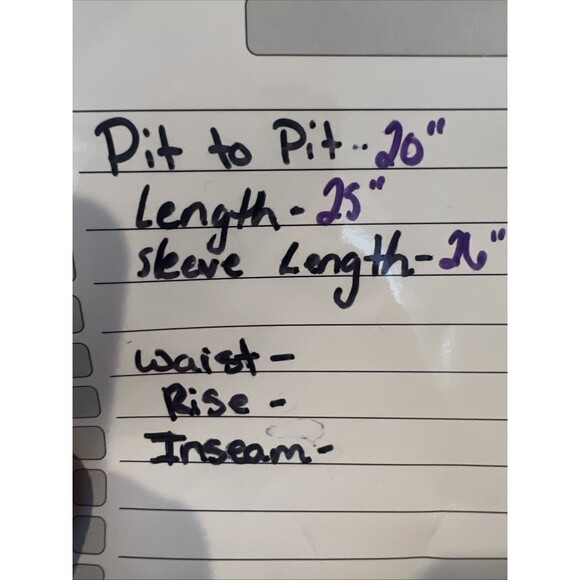 Pit to Pit-- 20"
Length - 25"
Sleeve Length - 26"
Waist -
Rise -
Inseam -